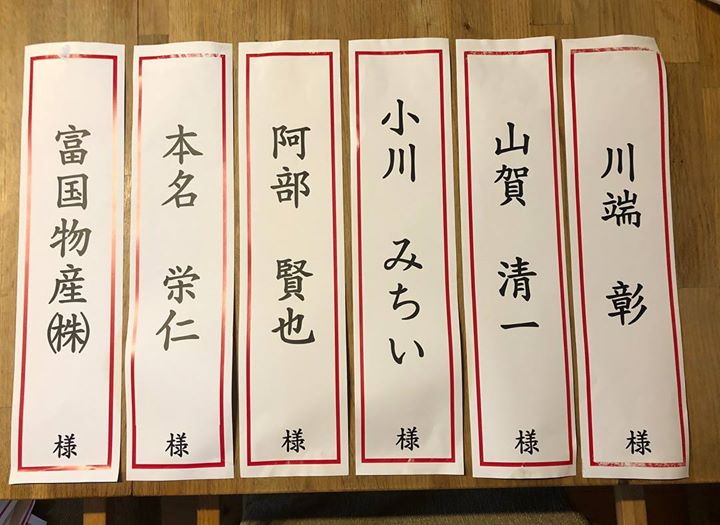 川端 彰 様
山賀 清一 様
小川 みちい 様
阿部 賢也 様
本名 栄仁 様
富国物産㈱ 様